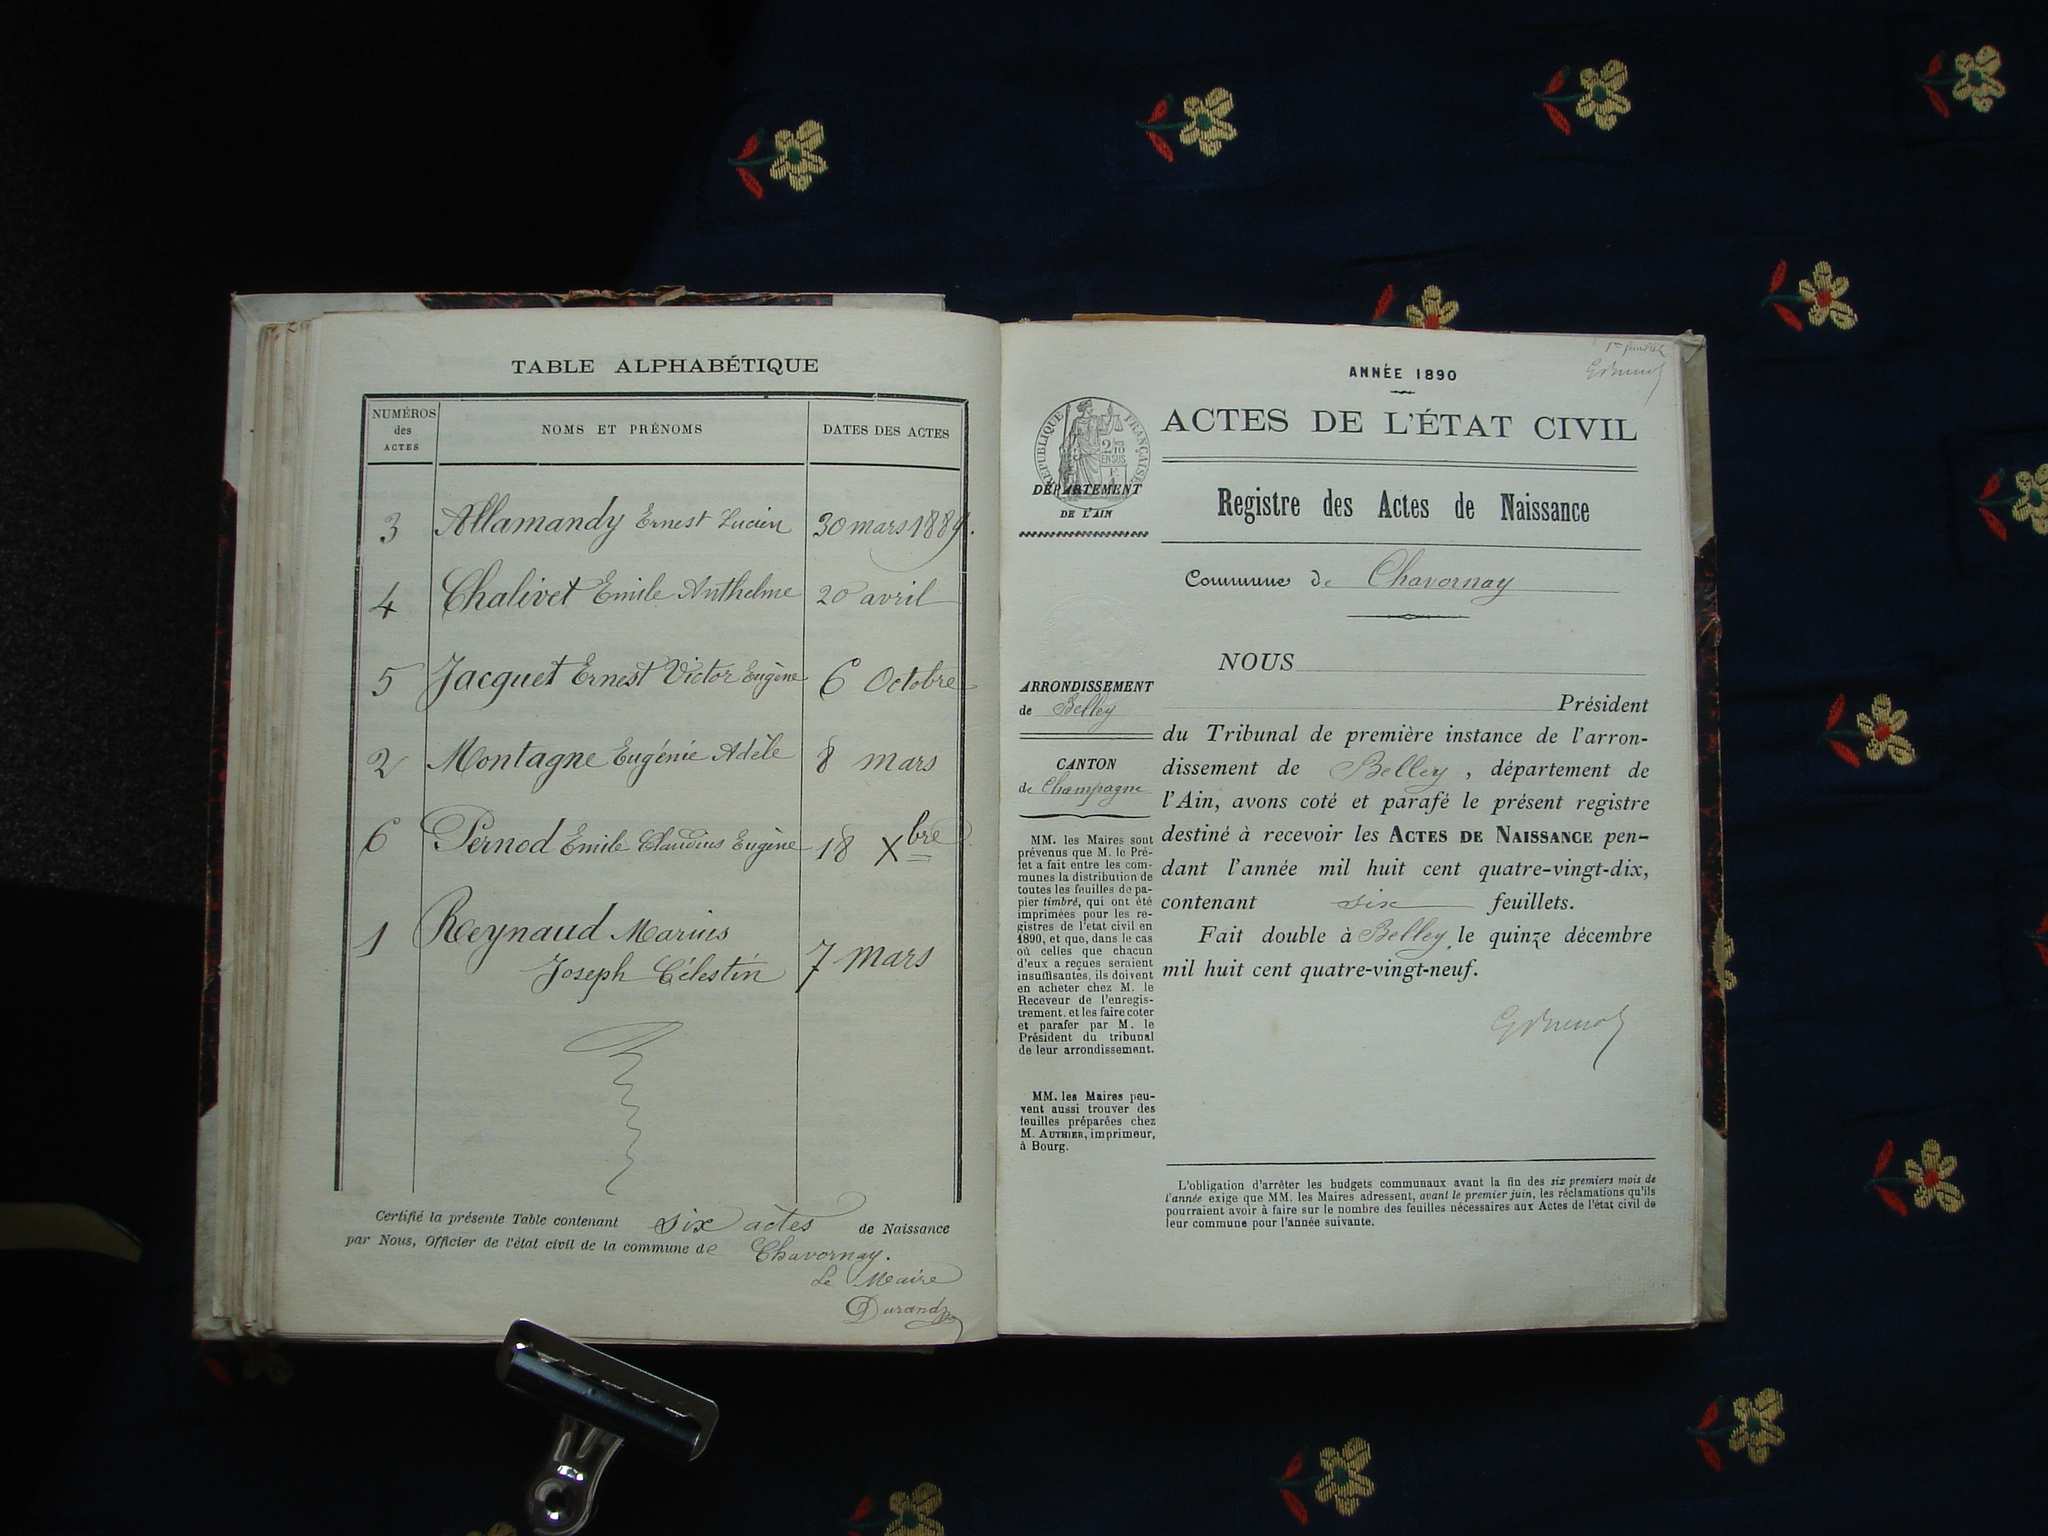 TABLE ALPHABÉTIQUE
NUMÉROS des ACTES NOMS ET PRÉNOMS DATES DES ACTES
3 Allamandy Ernest Lucien 30 mars 1889.
4 Chalivet Emile Anthelme 20 avril
5 Jacquet Ernest Victor Eugène 6 Octobre
2 Montagne Eugénie Adèle 8 mars
6 Pernod Emile Claudius Eugène 18 Xbre
1 Reynaud Marius
Joseph Célestin 7 mars
Certifié la présente Table contenant six actes de Naissance
par Nous, Officier de l'état civil de la commune de Chavornay.
Le Maire
Durand
ANNÉE 1890
ACTES DE L'ÉTAT CIVIL
RÉPUBLIQUE FRANÇAISE
DÉPARTEMENT
DE L'AIN
Registre des Actes de Naissance
Commune de Chavornay
NOUS
ARRONDISSEMENT
de Belley
CANTON
de Champagne
MM. les Maires sont
prévenus que M. le Pré-
fet a fait entre les com-
munes la distribution de
toutes les feuilles de pa-
pier timbré, qui ont été
imprimées pour les re-
gistres de l'état civil en
1890, et que, dans le cas
où celles que chacun
d'eux a reçues seraient
insuffisantes, ils doivent
en acheter chez M. le
Receveur de l'enregis-
trement, et les faire coter
et parafer par M. le
Président du tribunal
de leur arrondissement.
MM. les Maires peu-
vent aussi trouver des
feuilles préparées chez
M. AUTHIER, imprimeur,
à Bourg.
Président
du Tribunal de première instance de l'arron-
dissement de Belley, département de
l'Ain, avons coté et parafé le présent registre
destiné à recevoir les ACTES DE NAISSANCE pen-
dant l'année mil huit cent quatre-vingt-dix,
contenant six feuillets.
Fait double à Belley, le quinze décembre
mil huit cent quatre-vingt-neuf.
L'obligation d'arrêter les budgets communaux avant la fin des six premiers mois de
l'année exige que MM. les Maires adressent, avant le premier juin, les réclamations qu'ils
pourraient avoir à faire sur le nombre des feuilles nécessaires aux Actes de l'état civil de
leur commune pour l'année suivante.